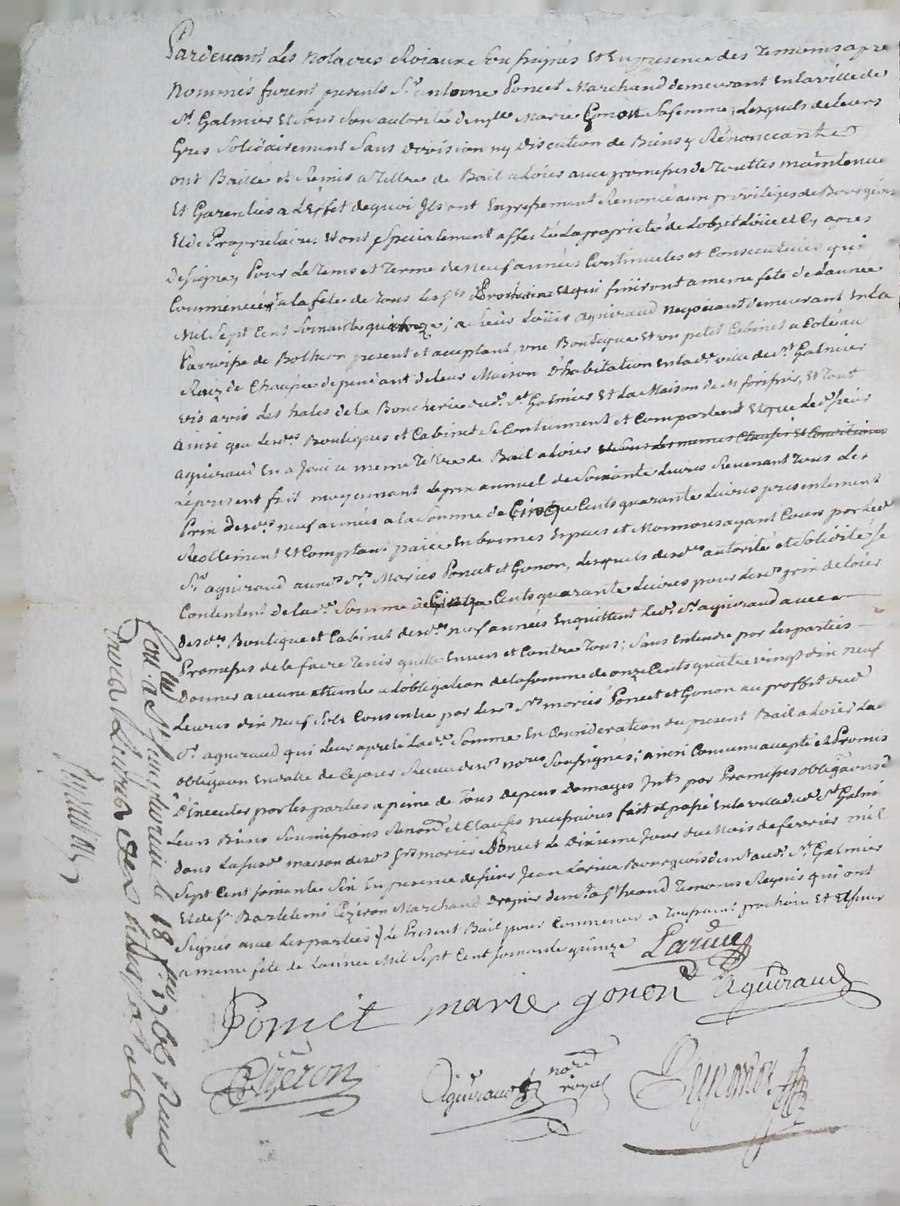 Pardevant Les Notaires Roiaux Soussignés Et En presence des Temoins apre
Nommés furent presents Sr. antoine Poncet Marchand demeurant En la ville de
St. Galmier Et sous son autorité demlle. Marie Gonon Sa femme, Lesquels de Leurs
Gres Solidairement Sans division ny discution de Biens y Renonceante
ont Baillé et Remis a Titre de Bail a Loier avec promesses de Touttes maintenue
Et Garenties a L'Effet de quoi Ils ont Expressement Renoncé aux privileges de Bourgeois
Et de Propriétaire, Et ont specialement affecté La propriété de L'objet Loüé et Cy apres
designé, Pour Le Tems et Terme de Neuf années Continuelles et Consecutives qui
Commenceront a la fete de Tous les Sts. Prochaine Et qui finiront a meme fete de L'année
Mil Sept Cent Soixante quinze, a Sieur Loüis aguiraud Negociant demeurant En La
Parroisse de Botheon present et acceptant, une Boutique Et un petit Cabinet a Coté au
Raiz de Chaussée dependant de Leur Maison D'habitation En lade. ville de St. Galmier
vis a vis des hales de la Boucherie dud. St. Galmier Et La Maison de Mr forissier, Et Tout
ainsi que Lesdes. Boutiques et Cabinet Se Contiennent et Comportent Et que Led. Sieur
aguiraud En a Joüi a meme Titre de Bail a Loier et Sous Les memes Clauses Et Conditions
Le present fait moyennant Le prix annuel de Soixante Livres Revenant Tous Les
Prix desdes. neuf années a la Somme de Cinq Cents quarante Livres presentement
Reellement Et Comptant paiée En bonnes Especes et Monnoies ayant Cours par Led.
Sr. aguiraud auxds. Srs. Mariés Poncet et Gonon, Lesquels desdes. autorité et Solidité se
Contentent de Lade. Somme de Cinq Cents quarante Livres pour desd. prix de Loier
desdes. Boutique et Cabinet desdes. neuf années En quittent Led. Sr. aguiraud avec
Promesses de la faire Tenir quitte Envers et Contre Tous; Sans Entendre par Les parties
donner aucune atteinte a L'obligation de La somme de onze Cents quatre vingt dix neuf
Livres dix neuf sols Consentie par Lesd. Srs. mariés Poncet et Gonon au proffit dud.
Sr. aguiraud qui Leur a preté Lade. Somme En Consideration du present Bail a Loier La
obligaon En datte de Ce jour Receue desds. nores Soussignés; ainsi Convenu accepté et Promis
D'Executer par les parties a peine de Tous depens domages Intts par Promesses obligaons de
Leurs Biens Soumissions Renonons et Clauses necessaires fait et passé En la ville dud. St. Galmi
dans La susde. maison desds. Srs mariés Poncet Le dixieme Jour du Mois de fevrier mil
Sept Cent Soixante Six En presence de sieur Jean Larüe Bourgeois demt. aud. St. Galmier
Et de Sr. Bartelemi Cizeron Marchand demt. a St heand Temoins Requis qui ont
Signés avec Les parties Le Present Bail pour Commencer a Toussaint prochain Et Et finir
a meme fete de L'année Mil Sept Cent Soixante quinze
Larüe
Poncet marie gonon Aguiraud
Cizeron
Aguiraud nore royal
Con. a St Simphorien le 18 fer. 1766 Receu